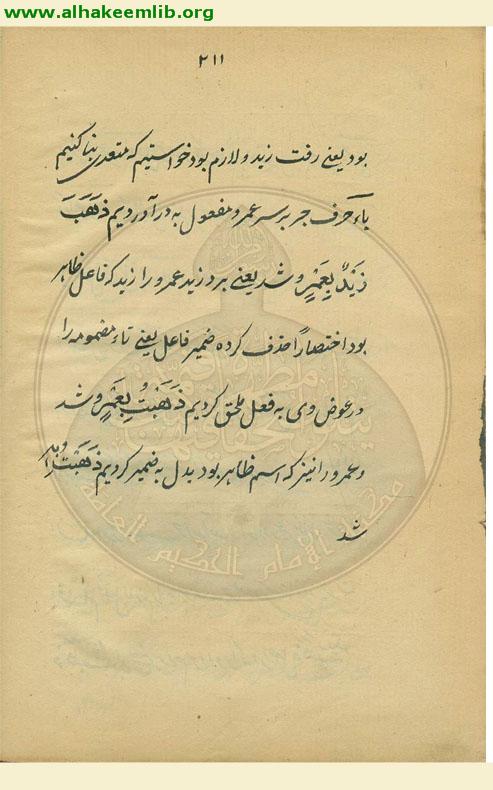 www.alhakeemlib.org
٢١١
بود یعنی رفت زید و لازم بود خواستیم که متعدی بنا کنیم
باء حرف جر بر سر عمرو مفعول به در آوردیم ذَهَبَ
زَیْدٌ بِعَمْرٍو شد یعنی برد زید عمرو را زید که فاعل ظاهر
بود اختصاراً حذف کرده ضمیر فاعل یعنی تاء مضمومه را
در عوض وی به فعل ملحق کردیم ذَهَبْتُ بِعَمْرٍو شد
و عمرو را نیز که اسم ظاهر بود بدل به ضمیر کردیم ذَهَبْتُ بِهِ
شد
مكتبة الإمام الحكيم العامة